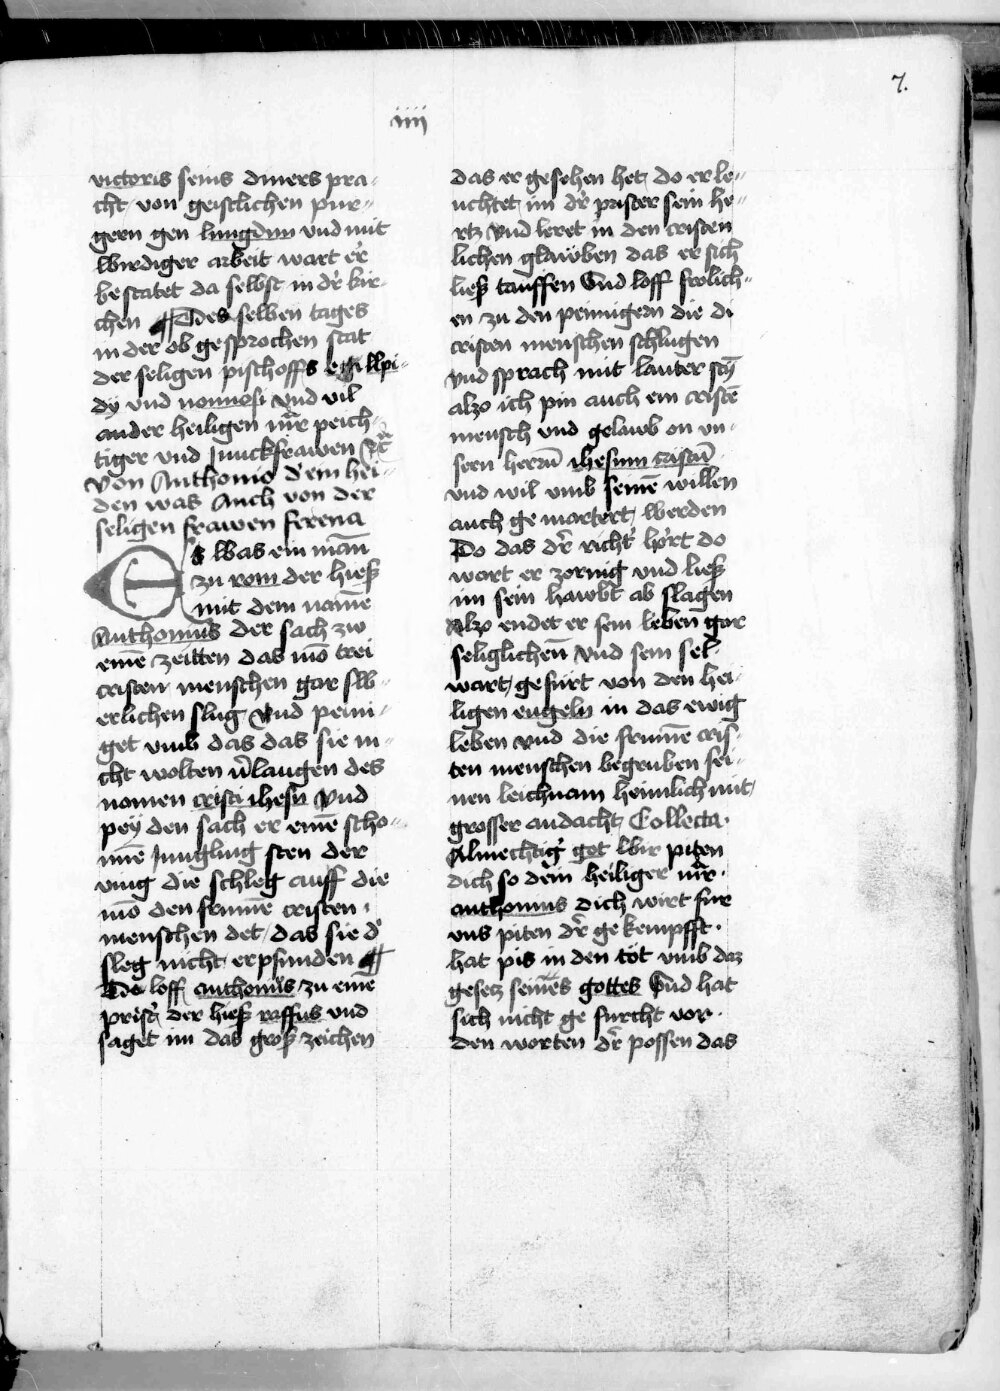 7.
iiij
victoris seins diners pra-
cht von geistlichen pur-
gern gen lungdun und mit
wirdiger arbeit wart er
bestatet da selbst in dr kir-
chen Des selben tages
in der ob gesprochen stat
der seligen pischoffs egillpi-
dÿ vnd nonnosi vnd vil
ander heiligen mr̄ peich-
tiger vnd junckfrawen
von Anthonio dem hei-
den was Auch von der
seligen frawen ferena
Es was ein man̄
zu rom der hieß
mit dem namē
Anthonius der sach zw
einē zeitten das mō trei
cristen menschen gar sw-
erlichen slug vnd peini-
get vmb das das sie ni-
cht wolten v̄laugen des
nomen cristi ihesu vnd
peÿ den sach er einē scho-
nnē Jungling sten der
ving die schleg auff die
mō den frumē cristen
menschen det das sie d̄
sleg nicht erpfunden
Do loff anthonius zu einē
prist̄ der hieß raffus vnd
saget im das groß zeichen
das er gesehen het do erle-
uchtet im dr̄ prister sein he-
rtz vnd leret in den cristen
lichen glawben das er sich
ließ tauffen Vnd loff frolich-
en zu den peinigern die di
cristen menschen schlugen
vnd sprach mit lauter stȳ
alzo ich pin auch ein cristē
mensch vnd gelawb on vn-
sern herrn̄ ihesum cristū
vnd wil vmb seinē willen
auch gemartert werden
Do das dr̄ richt̄ hort do
wart er zornig vnd ließ
im sein hawbt ab slagen
Alzo endet er sein leben gar
seliglichen̄ vnd sein sel
wart gefurt von den hei-
ligen engeln in das ewig
leben vnd die frumē cris-
ten menschen begruben sei-
nen leichnam heimlich mit
grosser andacht Collecta
Almechtiḡ got wir piten
dich so dein heiliger mr̄
anthonius dich wirt fur
vns piten dr̄ gekempfft
hat pis in den töt vmb daz
gesetz seinēs gottes Vnd hat
sich nicht ge furcht vor
den worten dr̄ possen das